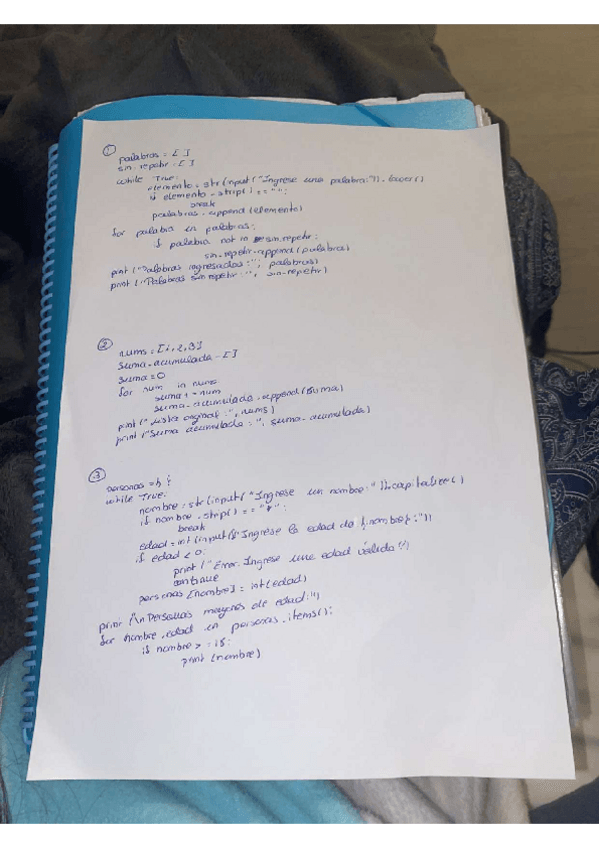 1
palabras = [ ]
sin_repetir = [ ]
while True:
elemento = str(input("Ingrese una palabra:")).lower()
if elemento.strip() == "":
break
palabras.append(elemento)
for palabra in palabras:
if palabra not in sin_repetir:
sin_repetir.append(palabra)
print("Palabras ingresadas:", palabras)
print("Palabras sin repetir:", sin_repetir)
2
nums = [1,2,3]
suma_acumulada = [ ]
suma = 0
for num in nums
suma += num
suma_acumulada.append(suma)
print("Lista original:", nums)
print("Suma acumulada:", suma_acumulada)
3
personas = { }
while True:
nombre = str(input("Ingrese un nombre:")).capitalize()
if nombre.strip() == "":
break
edad = int(input(f"Ingrese la edad de {nombre}:"))
if edad < 0:
print("Error. Ingrese una edad válida")
continue
personas[nombre] = int(edad)
print("\n Personas mayores de edad:")
for nombre, edad in personas.items():
if nombre >= 18:
print(nombre)